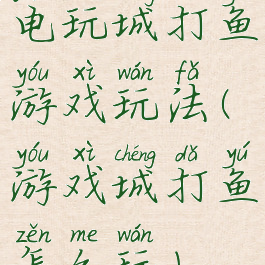 电玩城打鱼
yóu xì wán fǎ
游戏玩法(
yóu xì chéng dǎ yú
游戏城打鱼
zěn me wán
怎么玩)